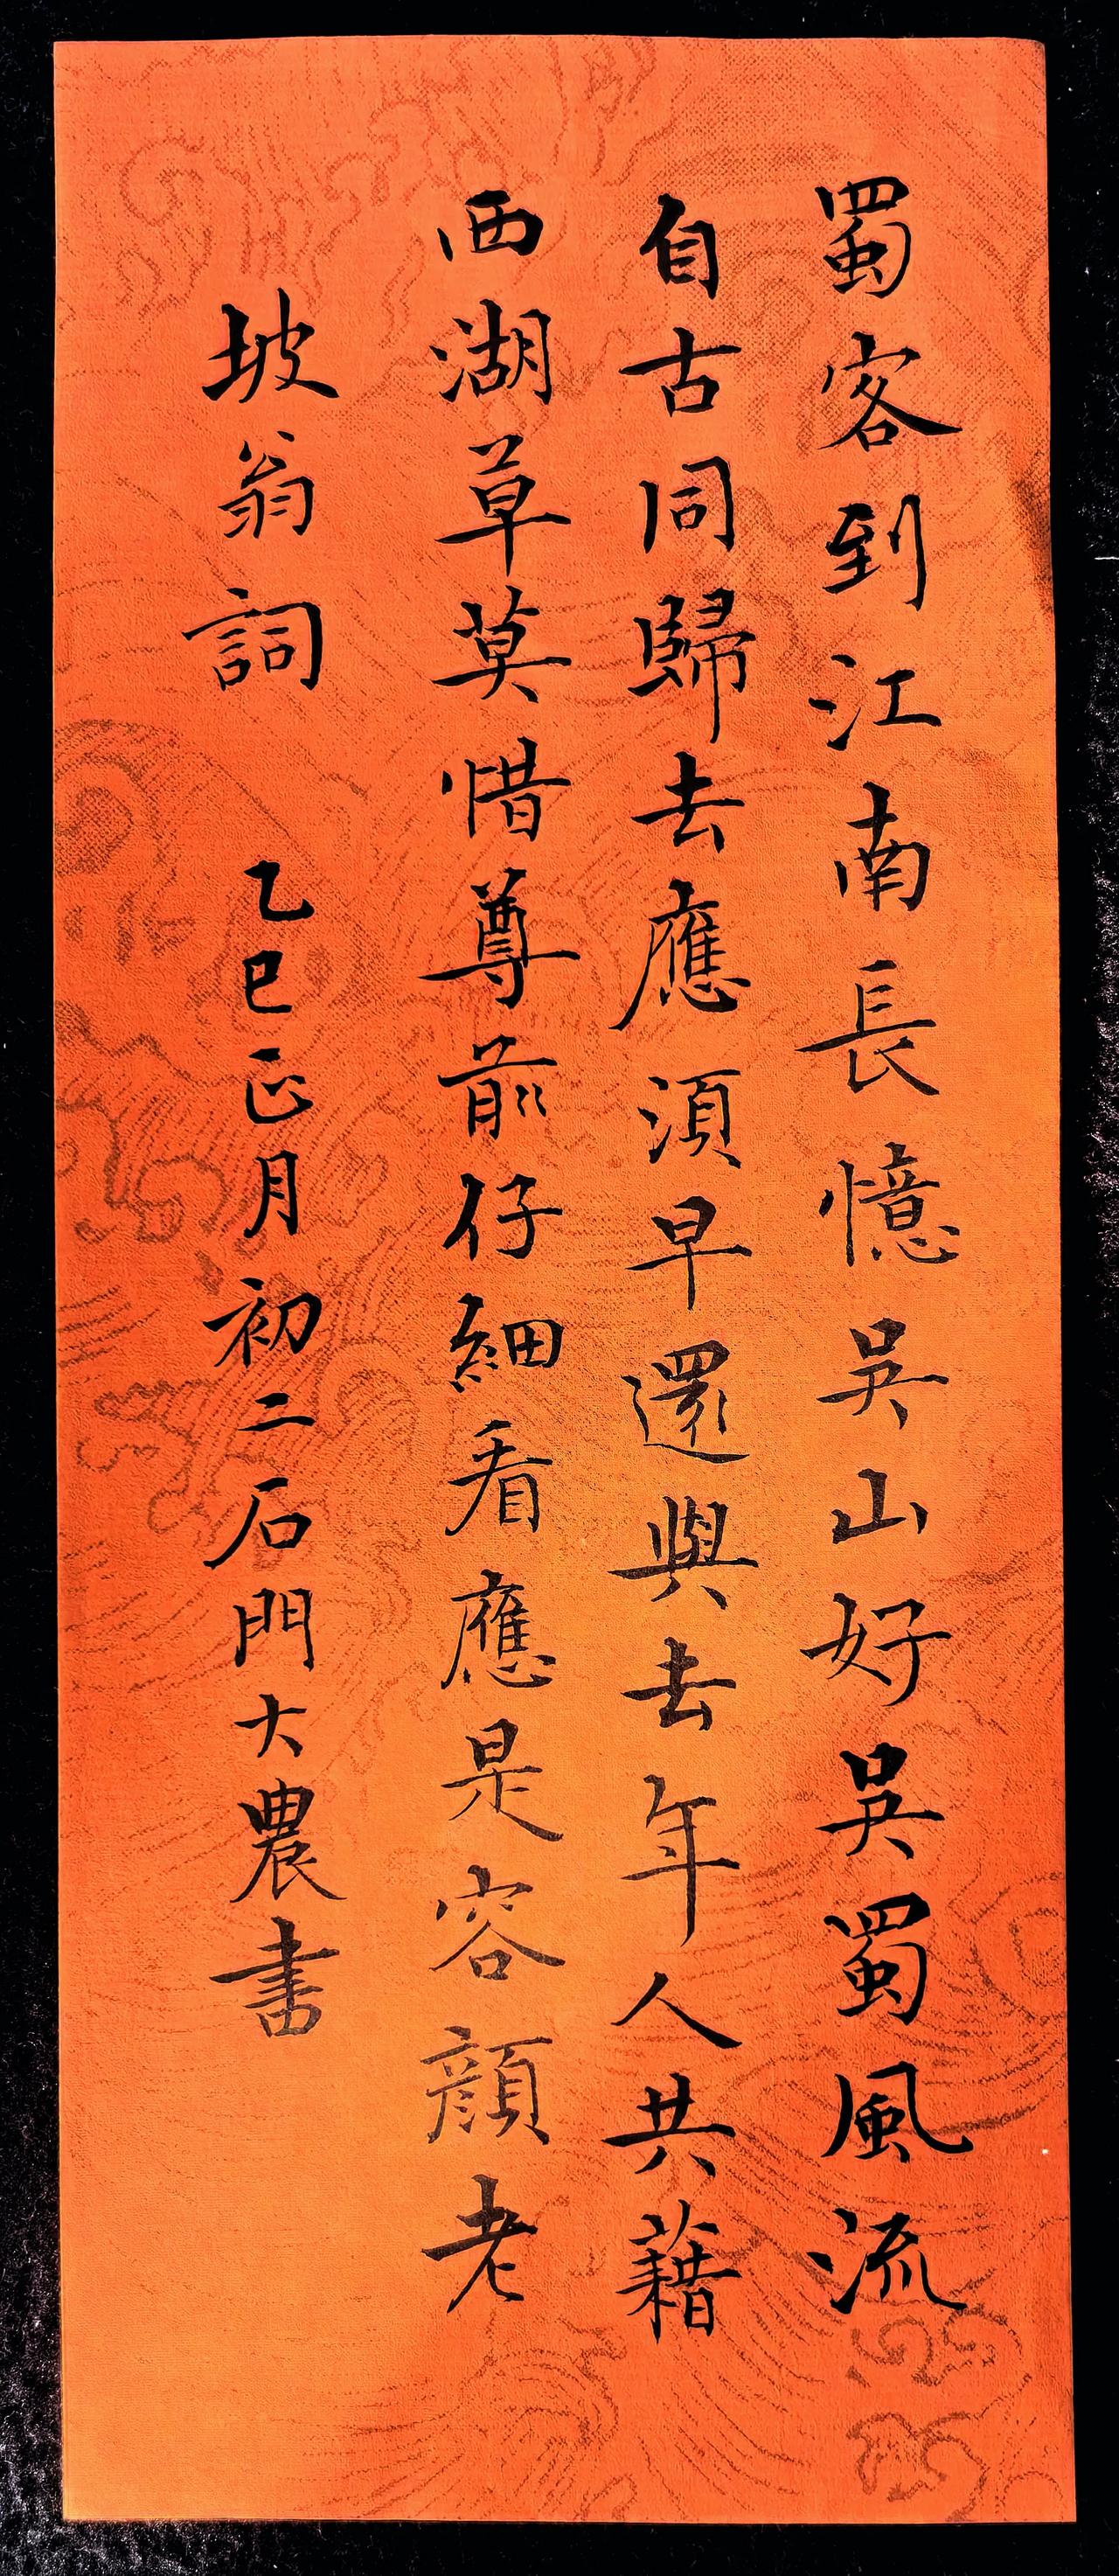 蜀客到江南長憶吳山好吳蜀風流
自古同歸去應須早還與去年人共藉
西湖草莫惜尊前仔細看應是容顏老
坡翁詞 乙巳正月初二石門大農書